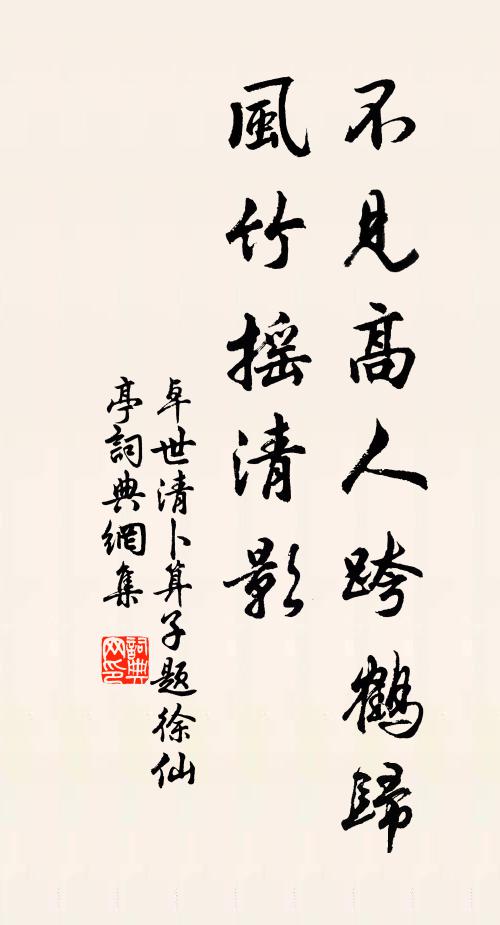 不見高人跨鶴歸
風竹摇清影
卓世清卜算子題徐仙
亭詞典網集
詞典
网印